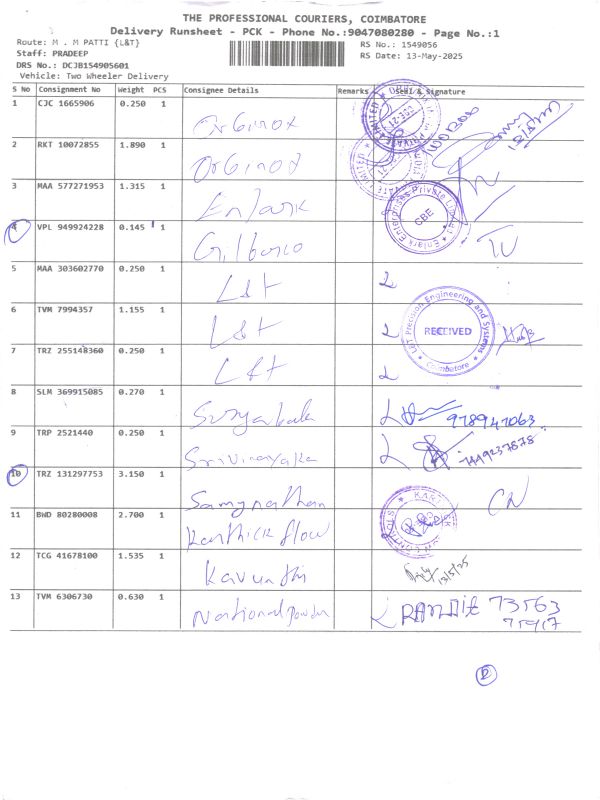 THE PROFESSIONAL COURIERS, COIMBATORE
Delivery Runsheet - PCK - Phone No.:9047080280 - Page No.:1
Route: M . M PATTI {L&T} RS No.: 1549056
Staff: PRADEEP RS Date: 13-May-2025
DRS No.: DCJB154905601
Vehicle: Two Wheeler Delivery
S No Consignment No Weight PCS Consignee Details Remarks Seal & Signature
1 CJC 1665906 0.250 1 OrGinox
2 RKT 10072855 1.890 1 OrGinod
3 MAA 577271953 1.315 1 Enlark
Enlark Enterprises Private Limited CBE
4 VPL 949924228 0.145 1 Gilbarco
5 MAA 303602770 0.250 1 L&t
6 TVM 7994357 1.155 1 L&t
L&T Precision Engineering and Systems RECEIVED Coimbatore
7 TRZ 255148360 0.250 1 L&t
8 SLM 369915085 0.270 1 Suryabala 978947063
9 TRP 2521440 0.250 1 Srivinayaka 7449237878
10 TRZ 131297753 3.150 1 Samynathan CN
11 BWD 80280008 2.700 1 Karthick flow
12 TCG 41678100 1.535 1 Kavunthi 13/5/25
13 TVM 6306730 0.630 1 National powder 73563
75917